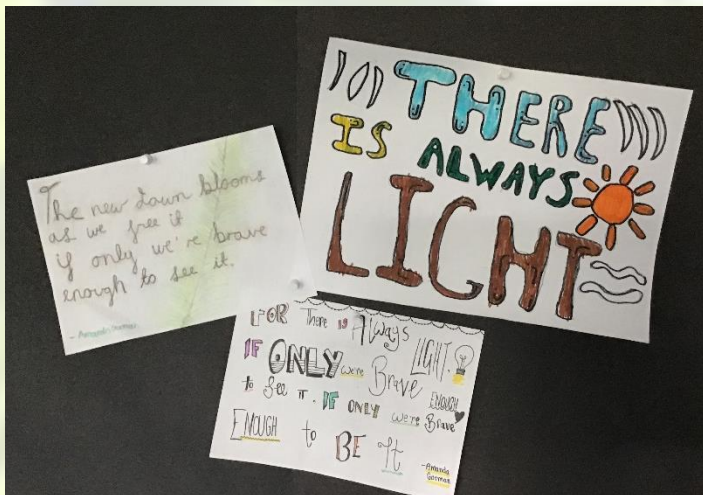 The new dawn blooms
as we free it
if only we're brave
enough to see it.
- Amanda Gorman
THERE
IS ALWAYS
LIGHT
FOR There is Always
LIGHT.
IF ONLY we're Brave
ENOUGH
to See IT. IF ONLY we're Brave
ENOUGH to BE It
-Amanda
Gorman